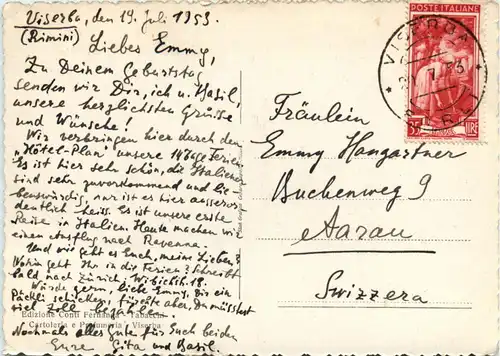 Viserba, den 19. Juli 1953.
(Rimini)
Liebes Emmy,
Zu Deinem Geburtstag
senden wir Dir, ich u. Basil,
unsere herzlichsten Grüsse
und Wünsche!
Wir verbringen hier durch den
"Hôtel-Plan" unsere 14 Tage Ferien.
Es ist hier sehr schön, die Italiener
sind sehr zuvorkommend und lie-
benswürdig, nur ist es hier ausseror-
dentlich heiss. Es ist unsere erste
Reise in Italien. Heute machen wir
einen Ausflug nach Ravenna.
Und wie geht es Euch, meine Lieben?
Wohin geht Ihr in die Ferien? Schreibt
bald nach Zürich, Wibichstr. 18.
Würde gern, liebe Emmy, Dir ein
Päckli schicken, fürchte aber, Du müsstest
viel Zoll bezahlen.
Nochmals alles gute für Euch beiden
Eure Gita und Basil.
Edizione Conti Fernando - Tabacchi
Cartoleria e Profumeria - Viserba
POSTE ITALIANE
35 LIRE
VISERBA
Fräulein
Emmy Hongartner
Buchenweg 9
Aarau
Svizzera